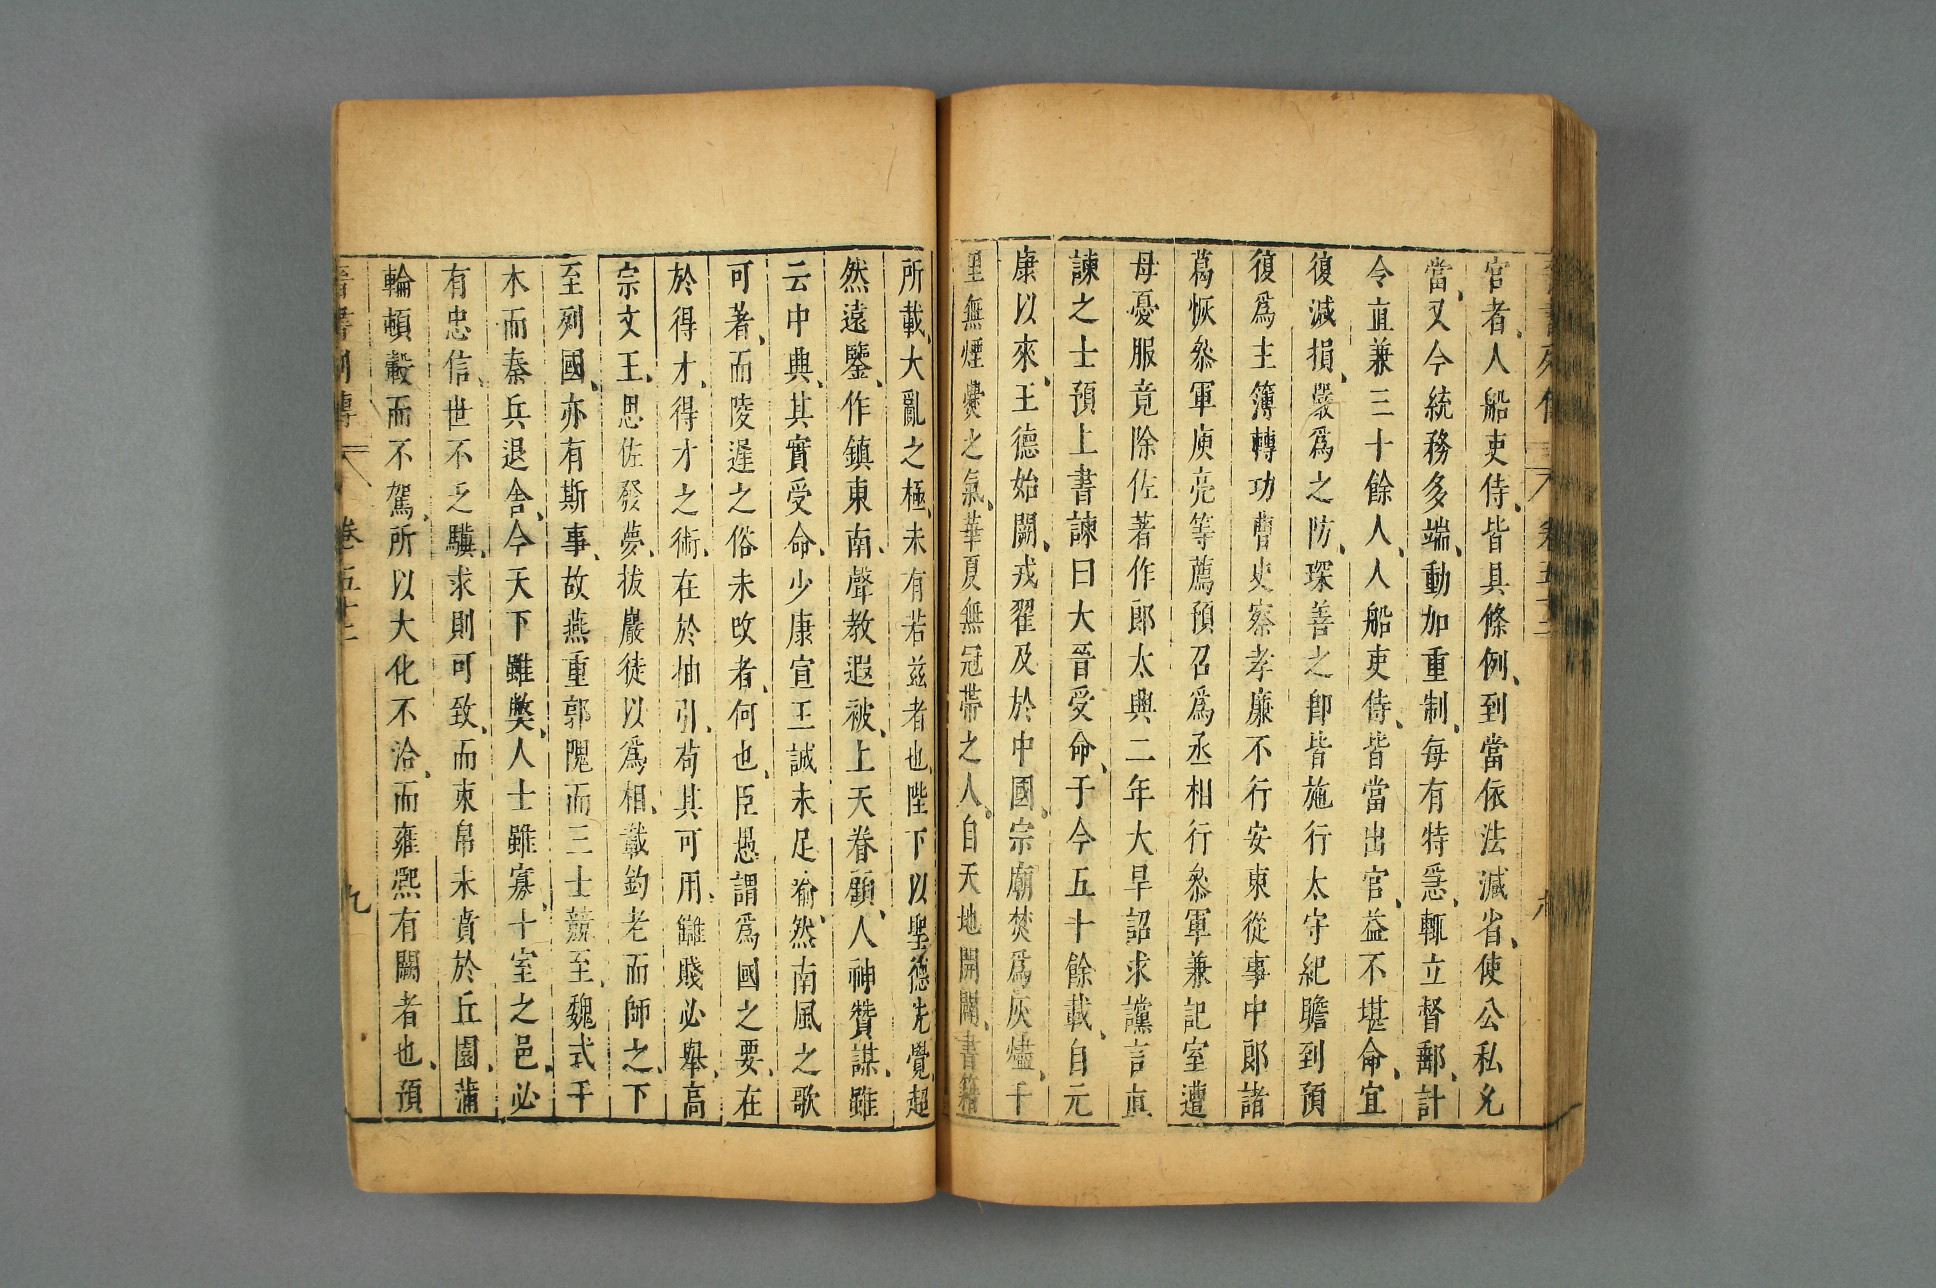 官者、人船吏侍、皆具條例、到當依法減省、使公私允
當、又今統務多端、動加重制、每有特急、輒立督郵、計
今直兼三十餘人、人船吏侍、皆當出官、益不堪命、宜
復減損、嚴爲之防、琛善之卽皆施行太守紀瞻到預
復爲主簿轉功曹史察孝廉不行安東從事中郎諸
葛恢叅軍庾亮等薦預召爲丞相行叅軍兼記室遭
母憂服竟除佐著作郎太興二年大旱詔求讜言直
諫之士預上書諫曰大晉受命、于今五十餘載、自元
康以來、王德始闕、戎翟及於中國、宗廟焚爲灰燼、千
里無煙爨之氣、華夏無冠帶之人、自天地開闢、書籍
所載、大亂之極、未有若兹者也、陛下以聖德先覺、超
然遠鑒、作鎮東南、聲教遐被、上天眷顧、人神贊謀、雖
云中興、其實受命、少康宣王誠未足喻、然南風之歌
可著、而陵遲之俗未改者、何也、臣愚謂爲國之要、在
於得才、得才之術、在於抽引、苟其可用、讎賤必舉、高
宗文王、思佐發夢、拔巖徒以爲相、載釣老而師之、下
至列國、亦有斯事、故燕重郭隗而三士競至、魏式干
木而秦兵退舍、今天下雖獘、人士雖寡、十室之邑、必
有忠信、世不乏驥、求則可致、而束帛未賁於丘園、蒲
輪頓轂而不駕、所以大化不洽、而雍熙有闕者也、預
晉書列傳 卷五十二 九